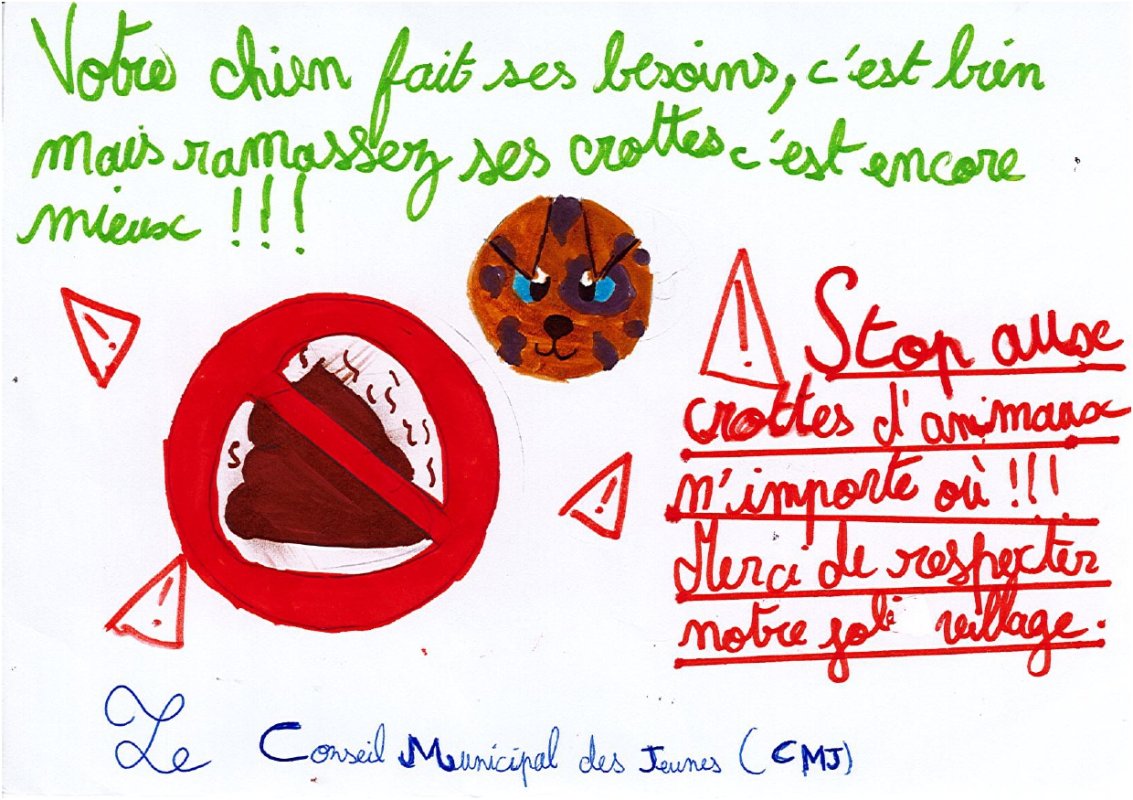 Votre chien fait ses besoins, c'est bien
mais ramassez ses crottes c'est encore
mieux !!!
Stop aux
crottes d'animaux
n'importe où !!!
Merci de respecter
notre joli village.
Le Conseil Municipal des Jeunes (CMJ)